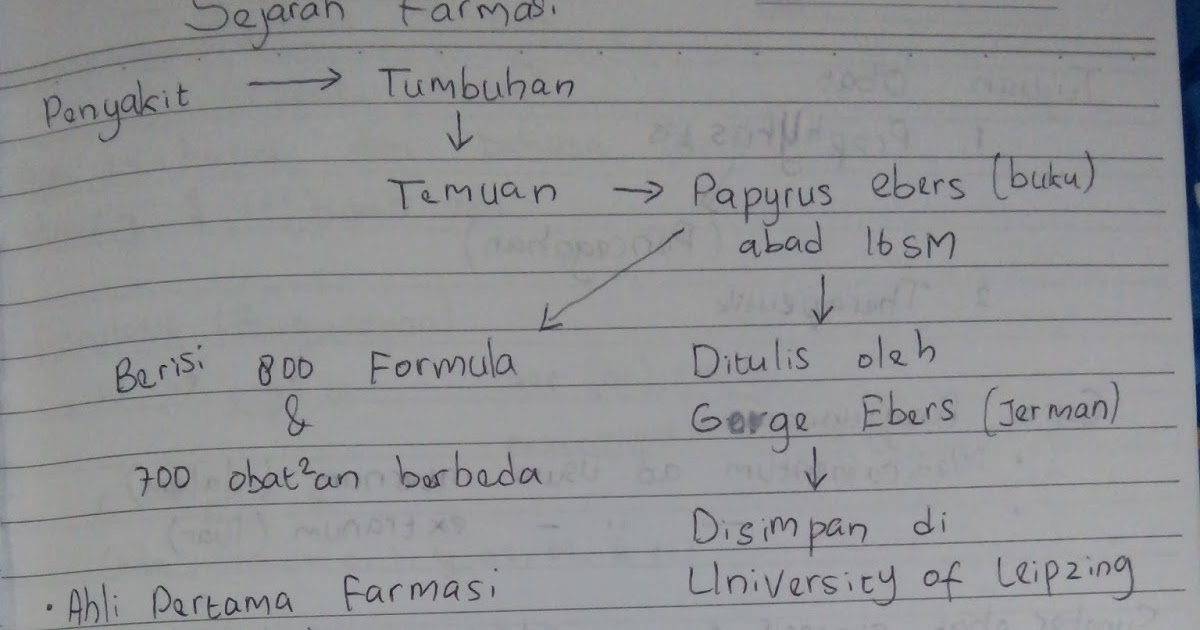 Sejarah Farmasi
Penyakit → Tumbuhan
↓
Temuan → Papyrus ebers (buku)
abad 16 SM
↓
Berisi 800 Formula
&
700 obat²an berbeda
Ditulis oleh
Gorge Ebers (Jerman)
↓
Disimpan di
University of Leipzing
• Ahli Pertama Farmasi